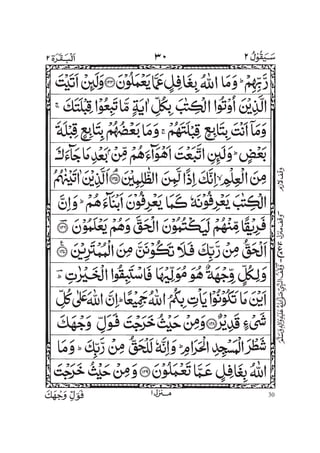 سَيَقُوْلُ ٢ ٣٠ اَلْبَقَرَة ٢
رَّبِّهِمْ ؕ وَمَا اللّٰهُ بِغَافِلٍ عَمَّا يَعْمَلُوْنَ ﴿۱۴۴﴾ وَلَئِنْ اَتَيْتَ
الَّذِيْنَ اُوْتُوا الْكِتٰبَ بِكُلِّ اٰيَةٍ مَّا تَبِعُوْا قِبْلَتَكَ ۚ
وَمَاۤ اَنْتَ بِتَابِعٍ قِبْلَتَهُمْ ۚ وَمَا بَعْضُهُمْ بِتَابِعٍ قِبْلَةَ
بَعْضٍ ؕ وَلَئِنِ اتَّبَعْتَ اَهْوَآءَهُمْ مِّنْۢ بَعْدِ مَا جَآءَكَ
مِنَ الْعِلْمِ ۙ اِنَّكَ اِذًا لَّمِنَ الظّٰلِمِيْنَ ﴿۱۴۵﴾ اَلَّذِيْنَ اٰتَيْنٰهُمُ
الْكِتٰبَ يَعْرِفُوْنَهٗ كَمَا يَعْرِفُوْنَ اَبْنَآءَهُمْ ؕ وَاِنَّ
فَرِيْقًا مِّنْهُمْ لَيَكْتُمُوْنَ الْحَقَّ وَهُمْ يَعْلَمُوْنَ ﴿۱۴۶﴾
اَلْحَقُّ مِنْ رَّبِّكَ فَلَا تَكُوْنَنَّ مِنَ الْمُمْتَرِيْنَ ﴿۱۴۷﴾
وَلِكُلٍّ وِّجْهَةٌ هُوَ مُوَلِّيْهَا فَاسْتَبِقُوا الْخَيْرٰتِ ؕ
اَيْنَ مَا تَكُوْنُوْا يَاْتِ بِكُمُ اللّٰهُ جَمِيْعًا ؕ اِنَّ اللّٰهَ عَلٰى كُلِّ
شَىْءٍ قَدِيْرٌ ﴿۱۴۸﴾ وَمِنْ حَيْثُ خَرَجْتَ فَوَلِّ وَجْهَكَ
شَطْرَ الْمَسْجِدِ الْحَرَامِ ؕ وَاِنَّهٗ لَلْحَقُّ مِنْ رَّبِّكَ ؕ وَمَا
اللّٰهُ بِغَافِلٍ عَمَّا تَعْمَلُوْنَ ﴿۱۴۹﴾ وَمِنْ حَيْثُ خَرَجْتَ
فَوَلِّ وَجْهَكَ منزل ١ 30